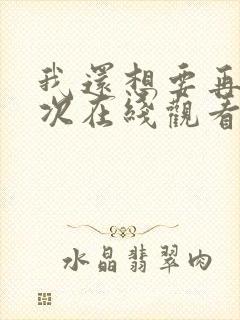 我還想要再
次在綫觀看
水晶翡翠肉